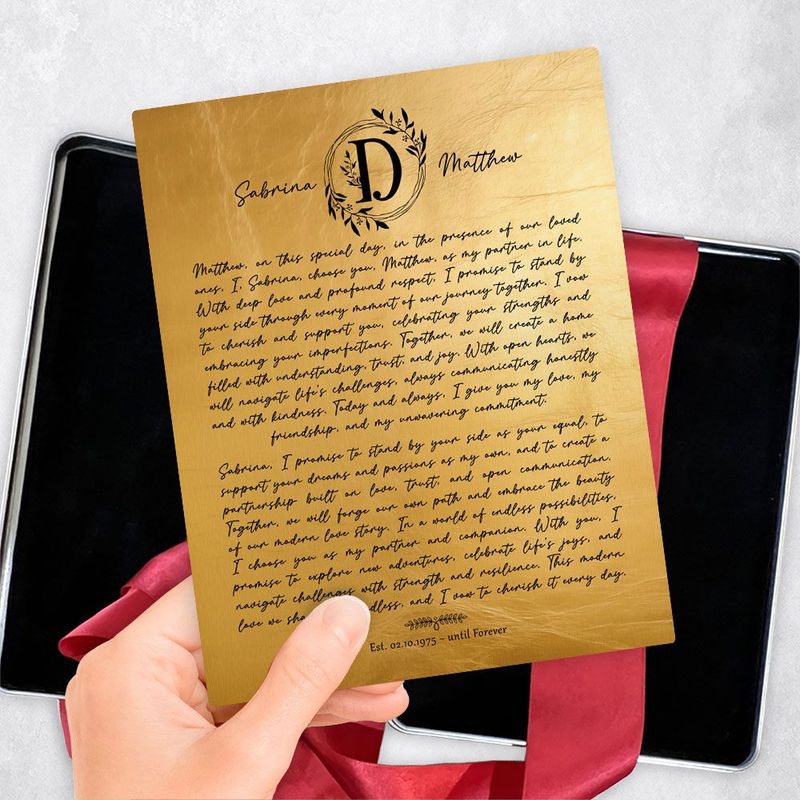 Sabrina D Matthew
Matthew, on this special day, in the presence of our loved
ones, I, Sabrina, choose you, Matthew, as my partner in life.
With deep love and profound respect, I promise to stand by
your side through every moment of our journey together. I vow
to cherish and support you, celebrating your strengths and
embracing your imperfections. Together, we will create a home
filled with understanding, trust, and joy. With open hearts, we
will navigate life's challenges, always communicating honestly
and with kindness. Today and always, I give you my love, my
friendship, and my unwavering commitment.
Sabrina, I promise to stand by your side as your equal, to
support your dreams and passions as my own, and to create a
partnership built on love, trust, and open communication.
Together, we will forge our own path and embrace the beauty
of our modern love story. In a world of endless possibilities,
I choose you as my partner and companion. With you, I
promise to explore new adventures, celebrate life's joys, and
navigate challenges with strength and resilience. This modern
love we and I vow to cherish it every day.
Est. 02.10.1975 ~ until Forever